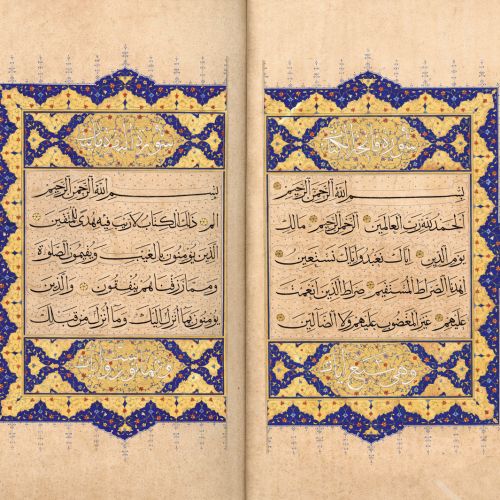 سورة فاتحة الكتاب
بسم الله الرحمن الرحيم
الحمد لله رب العالمين الرحمن الرحيم مالك
يوم الدين اياك نعبد واياك نستعين
اهدنا الصراط المستقيم صراط الذين انعمت
عليهم غير المغضوب عليهم ولا الضالين
وهي سبع آيات
سورة البقرة مائتان
بسم الله الرحمن الرحيم
الم ذلك الكتاب لا ريب فيه هدى للمتقين
الذين يؤمنون بالغيب ويقيمون الصلوة
ومما رزقناهم ينفقون والذين
يؤمنون بما انزل اليك وما انزل من قبلك
وثمانون وست آيات